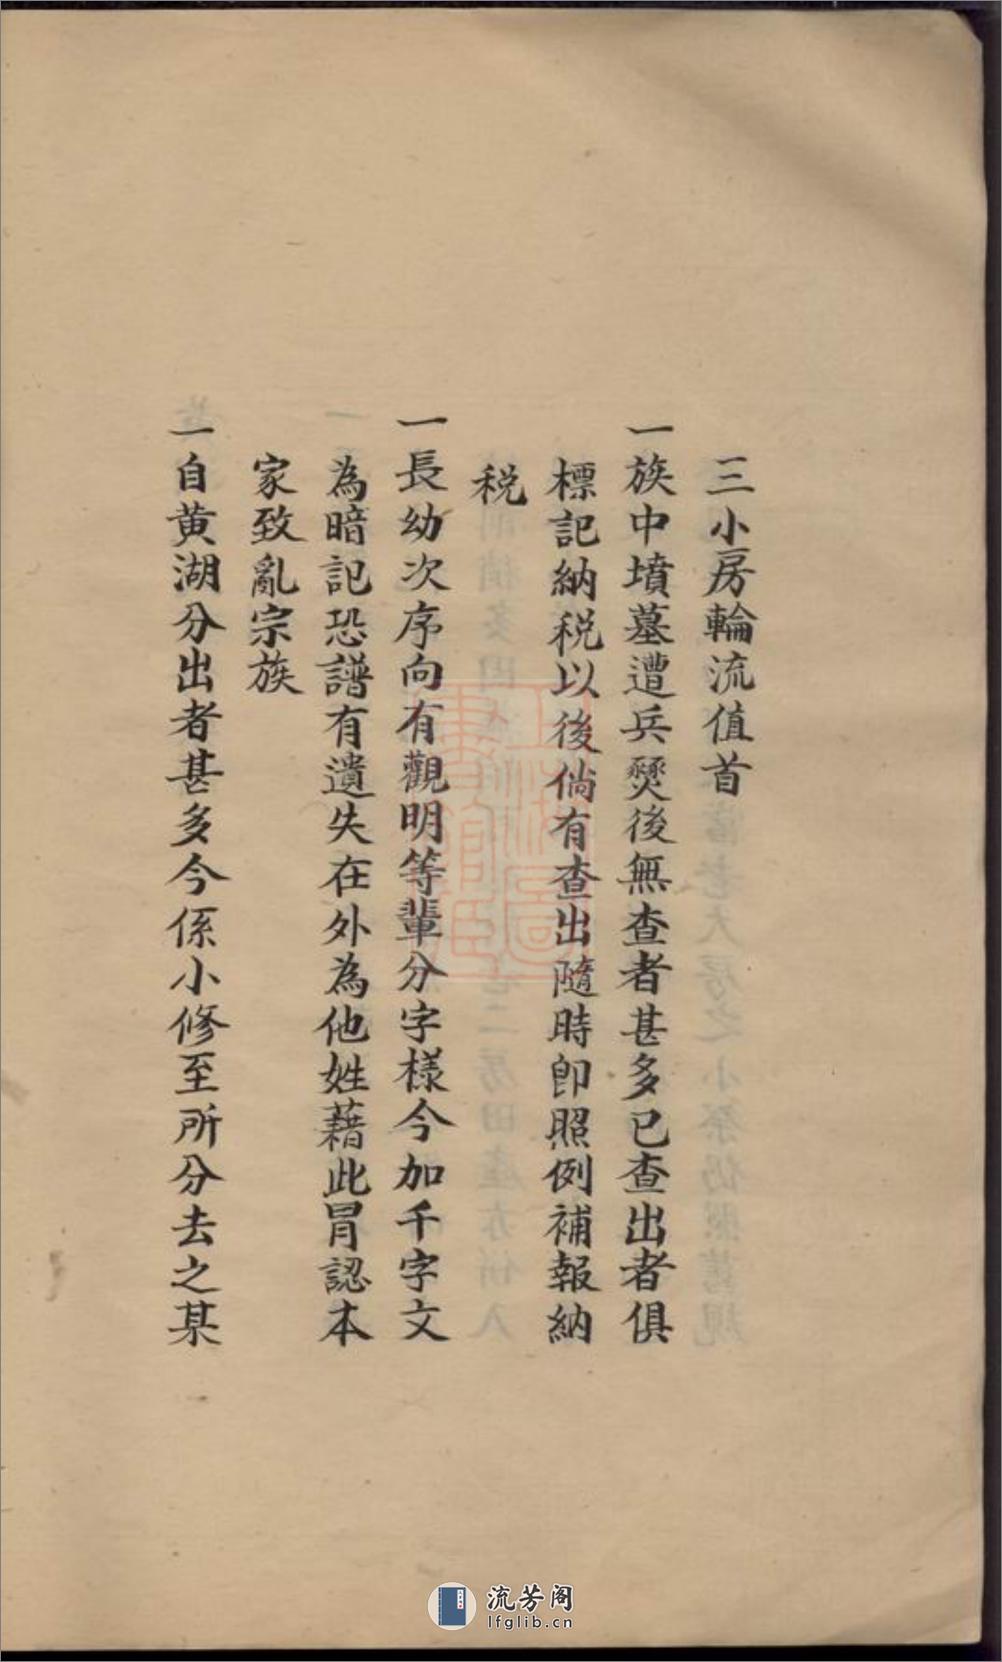 三小房輪流值首
一族中墳墓遭兵燹後無查者甚多已查出者俱
標記納税以後倘有查出隨時即照例補報納
税
一長幼次序向有觀明等輩分字樣今加千字文
為暗記恐譜有遺失在外為他姓藉此冐認本
家致亂宗族
一自黄湖分出者甚多今係小修至所分去之某
流芳阁
lfglib.cn